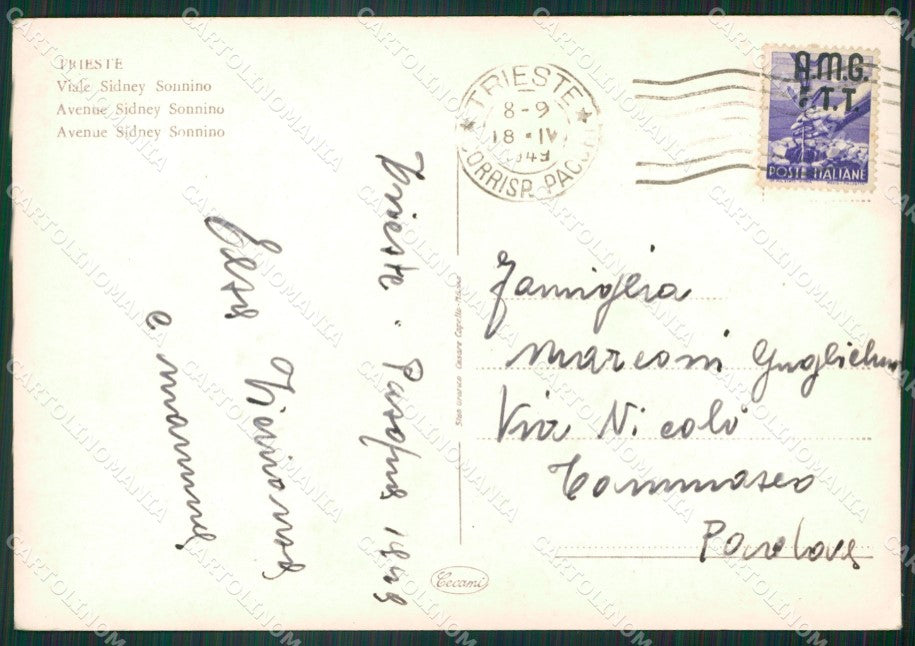 TRIESTE
Viale Sidney Sonnino
Avenue Sidney Sonnino
Avenue Sidney Sonnino
TRIESTE
8-9
18·IV
1949
CORRISP. PACCHI
A.M.G.
F.T.T.
POSTE ITALIANE
Trieste. Pasqua 1949
e mamma
Famiglia
Marconi Guglielmo
Via Nicolò
Tommaseo
Padova
Cecami
CARTOLINOMANIA